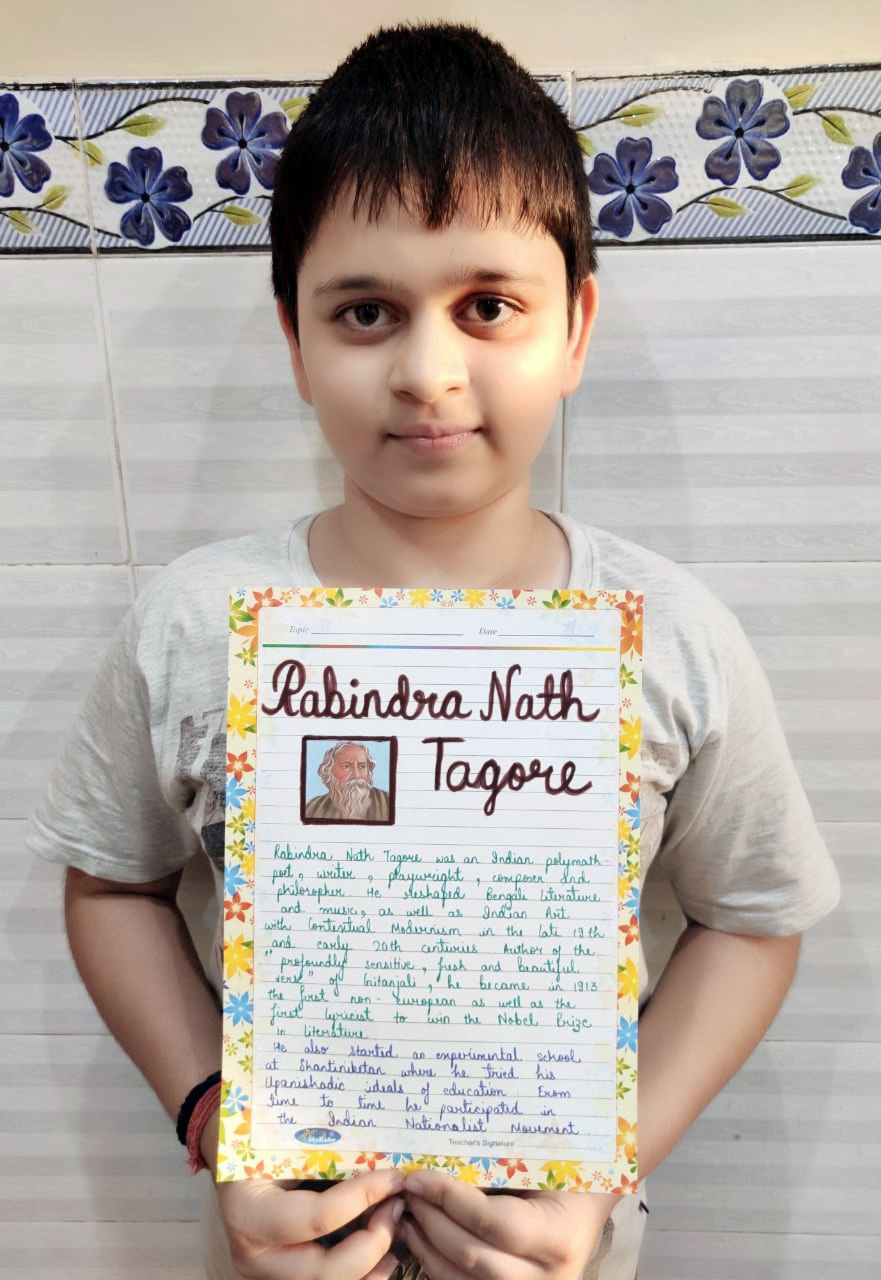 Topic Date
Rabindra Nath
Tagore
Rabindra Nath Tagore was an Indian polymath-
poet, writer, playwright, composer and
philosopher. He reshaped Bengali literature
and music, as well as Indian Art
with Contextual Modernism in the late 19th
and early 20th centuries. Author of the
"profoundly sensitive, fresh and beautiful
verse" of Gitanjali, he became in 1913
the first non-european as well as the
first lyricist to win the Nobel Prize
in literature.
He also started an experimental school
at Shantiniketan where he tried his
Upanishadic ideals of education. From
time to time he participated in
the Indian Nationalist Movement.
Teacher's Signature